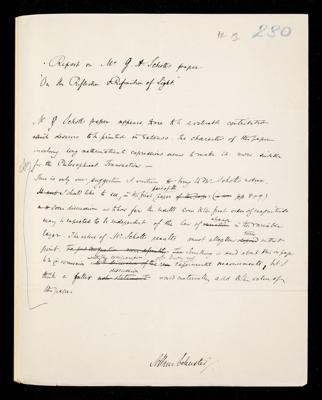 230
Report on Mr G. A. Schott's paper
"On the Reflection & Refraction of Light"
Mr G Schott's paper appears to me to be a valuable contribution
which deserves to be printed in extenso. The character of the paper
involving long mathematical expressions seems to make it more suitable
for the Philosophical Transactions. —
There is only one suggestion I venture to bring to Mr. Schott's notice
I should like to see, in the first part of the paper (pp 8+9)
some discussion as to how far the results to the first order of magnitude
may be expected to be independent of the law of change in the variable
layer. The value of Mr. Schott's results must altogether on that
point. is said about this on page
experimental measurements, but I
think a fuller discussion would materially add to the value of
the paper.
Arthur Schuster